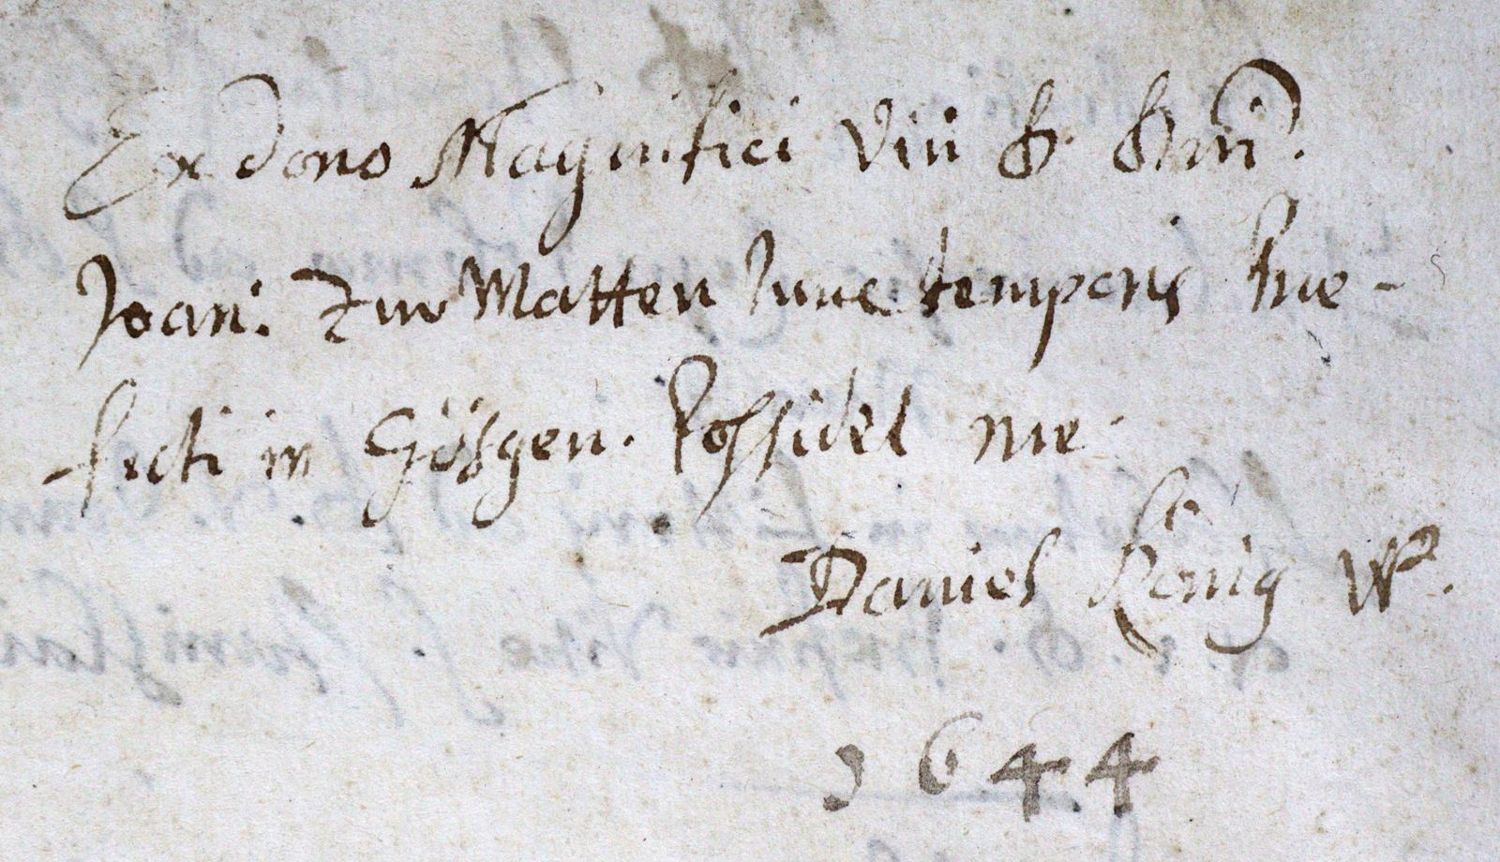 Ex dono Magnifici Viri D. Dni.
Joan: Zur Matten tunc temporis Prae-
fecti in Gösgen. Possidet me.
Daniel König
1644